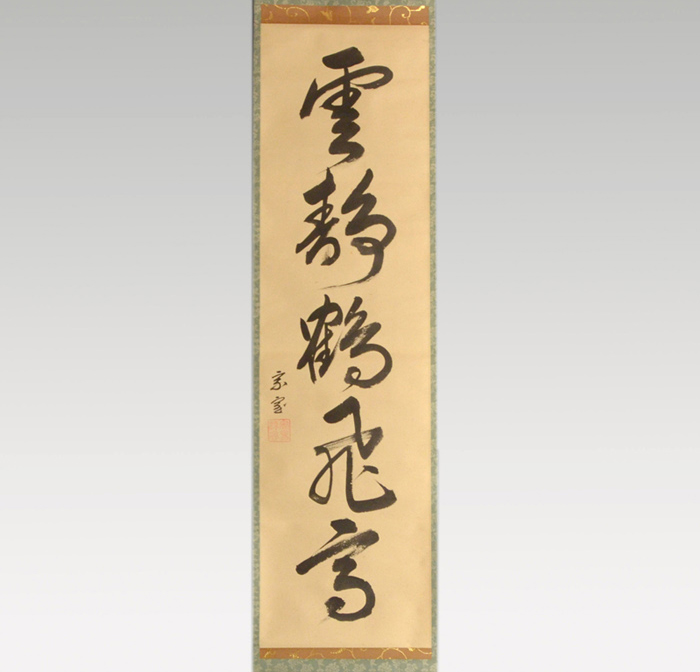 雲静鶴飛高
宗室